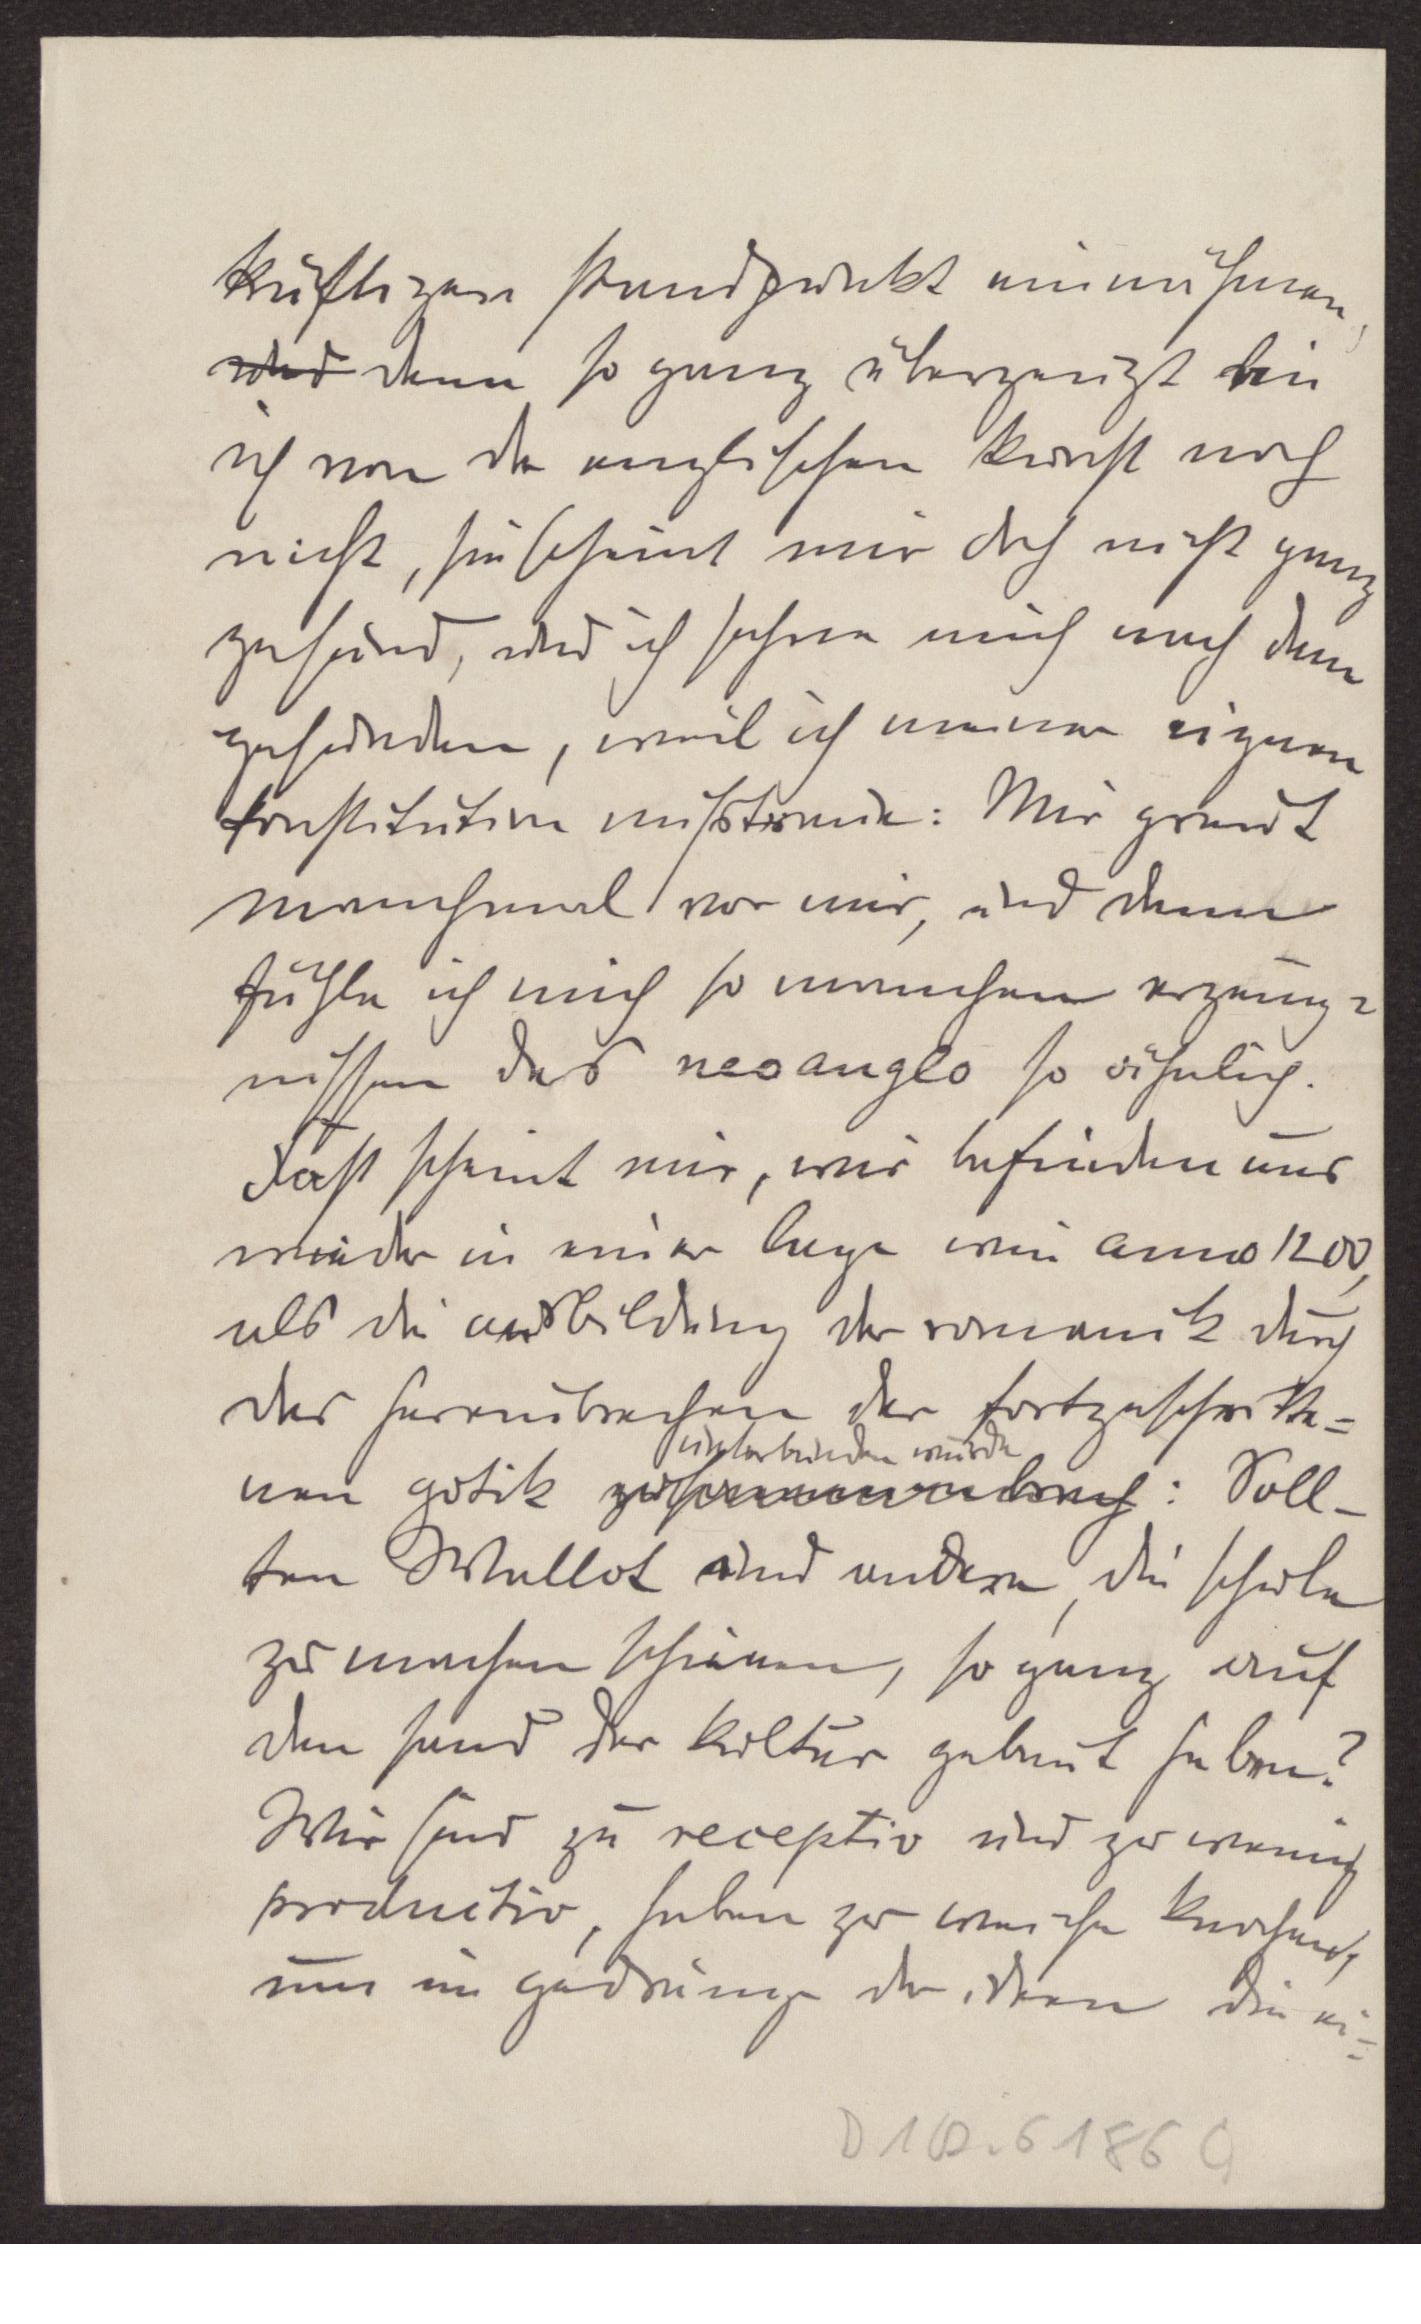 künftigen standpunkt einnähmen,
und denn so ganz überzeugt bin
ich von der englischen kunst noch
nicht, sie scheint mir doch nicht ganz
gesund, und ich sehne mich nach dem
gesunden, weil ich meiner eignen
konstitution misstraue: Mir graut
manchmal vor mir, und dann
fühle ich mich so manchen erzeug=
nissen des neoanglo so ähnlich.
Fast scheint mir, wir befinden uns
wieder in einer lage wie anno 1200,
als die ausbildung der romanik durch
das hereinbrechen der fortgeschritte=
unterbunden wurde
nen gotik zusammenbrach: Soll-
ten Wallot und andere, die schule
zu machen schienen, so ganz auf
den sand der kultur gebaut haben?
Wir sind zu receptiv und zu wenig
productiv, haben zu weiche knochen,
um im gedränge der ideen die ei=
D 182.6186 G